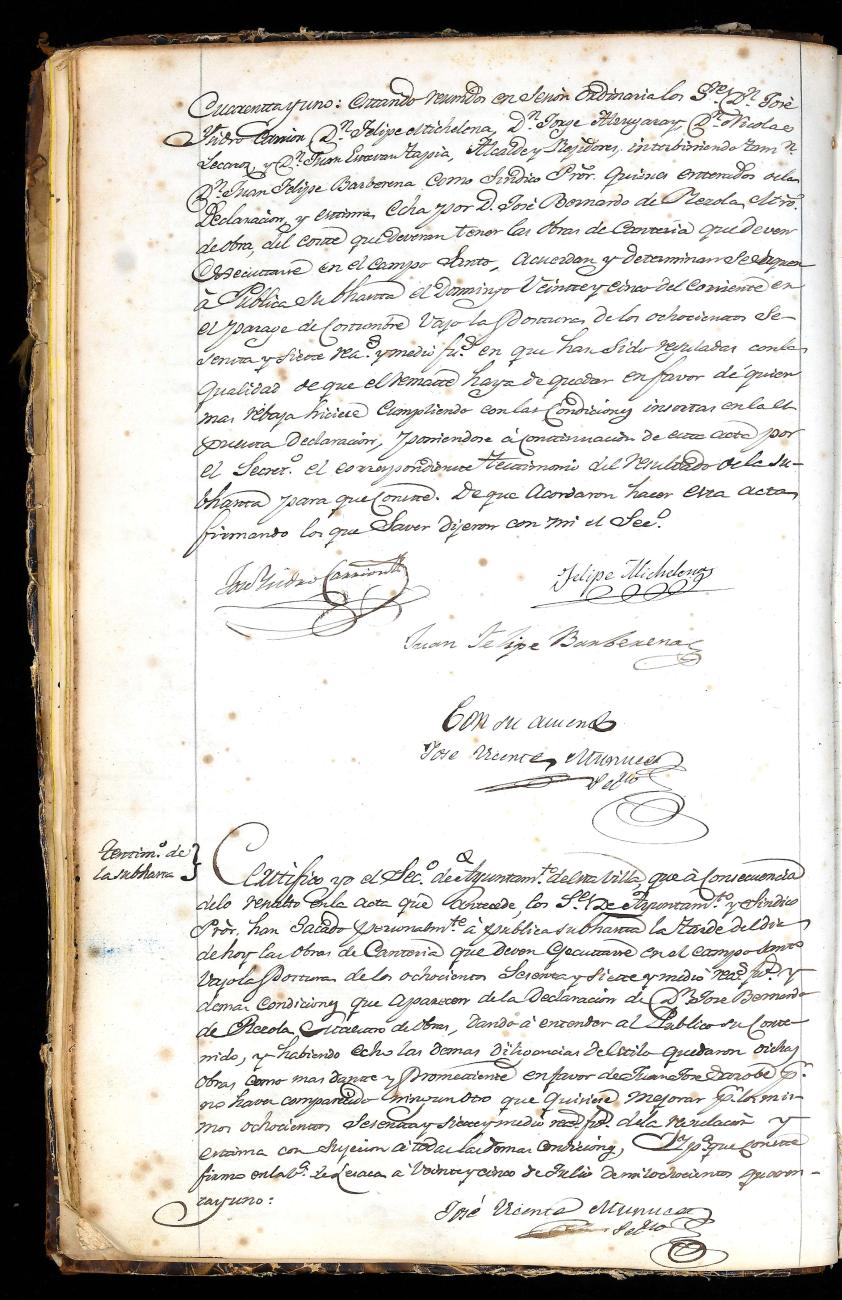 Cuarenta y uno: Estando reunidos en Sesion Ordinaria los Sres. Dn. José
Ysidro Carrion Dn. Felipe Michelena, Dn. Jorge Dn. Nicolas
y Dn. Juan Estevan Tapia, Alcalde y Rejidores, interbiniendo tamn.
Dn. Juan Felipe Barberena como Sindico Pror. Quienes enterados de la
Declaracion, y estima echa por D. José Bernardo de Mtro.
de obra, del coste que deveran tener las obras de Canteria que deven
Egecuttarse en el Campo Santo, acuerdan y determinan se saquen
á Publica subhasta el Domingo Veinte y cinco del Corriente en
el parage de Costumbre bajo la Postura de los ochocientos Se-
senta y siete rea.s y medio fu.s en que han sido reguladas con la
qualidad de que el remate haya de quedar en favor de quien
mas rebaja hiciese Cumpliendo con las Condiciones insertas en la ex
puesta Declaracion, y poniendose á Continuacion de esta acta por
el Secreto. el correspondiente testimonio del resultado de la Su-
bhasta para que Conste. De que Acordaron hacer esta acta
firmando los que Saver dijeron con mi el Seco.
José Ysidro Carrion
Felipe Michelena
Juan Felipe Barberena
Con su acuerdo
José Vicente
Secrio
Testimo. de
la subhasta
Certifico yo el Seco. de Ayuntamto. de esta Villa, que á Consecuencia
de lo resuelto en la acta que Antecede, los Sres. de Ayuntamto. y Sindico
Pror. han Sacado personalmte. á publica subhasta la tarde del dia
de hoy las Obras de Canteria que Deven Egecuttarse en el Campo Santo
bajo la Postura de los ochocientos Sesenta y Siete y medio rea.s fu.s y
demas Condiciones que aparecen de la Declaracion de Dn. José Bernardo
de Maestro de Obras, dando á entender al Publico su Conte-
nido, y habiendo echo las demas diligencias de estilo quedaron dichas
Obras como mas dante y Prometiente en favor de Juan José pr.
no haver comparecido ningun otro que quisiese mejorar pr. los mis-
mos ochocientos Sesenta y Siete y medio rea.s fu.s de la regulacion y
estima con Sujecion á todas las demas condiciones, pa. que conste
firmo en la Va. de Lesaca á Veinte y cinco de Julio de mil ochocientos quaren-
ta y uno:
José Vicente
Secrio